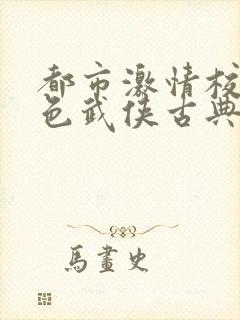 都市激情校
色武侠古典
馬畫史